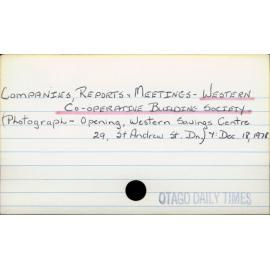 COMPANIES, REPORTS, MEETINGS - WESTERN
CO-OPERATIVE BUILDING SOCIETY.
(Photograph - Opening, Western Savings Centre
29, St Andrew St. Dn.) Y: Dec. 18, 1978
OTAGO DAILY TIMES